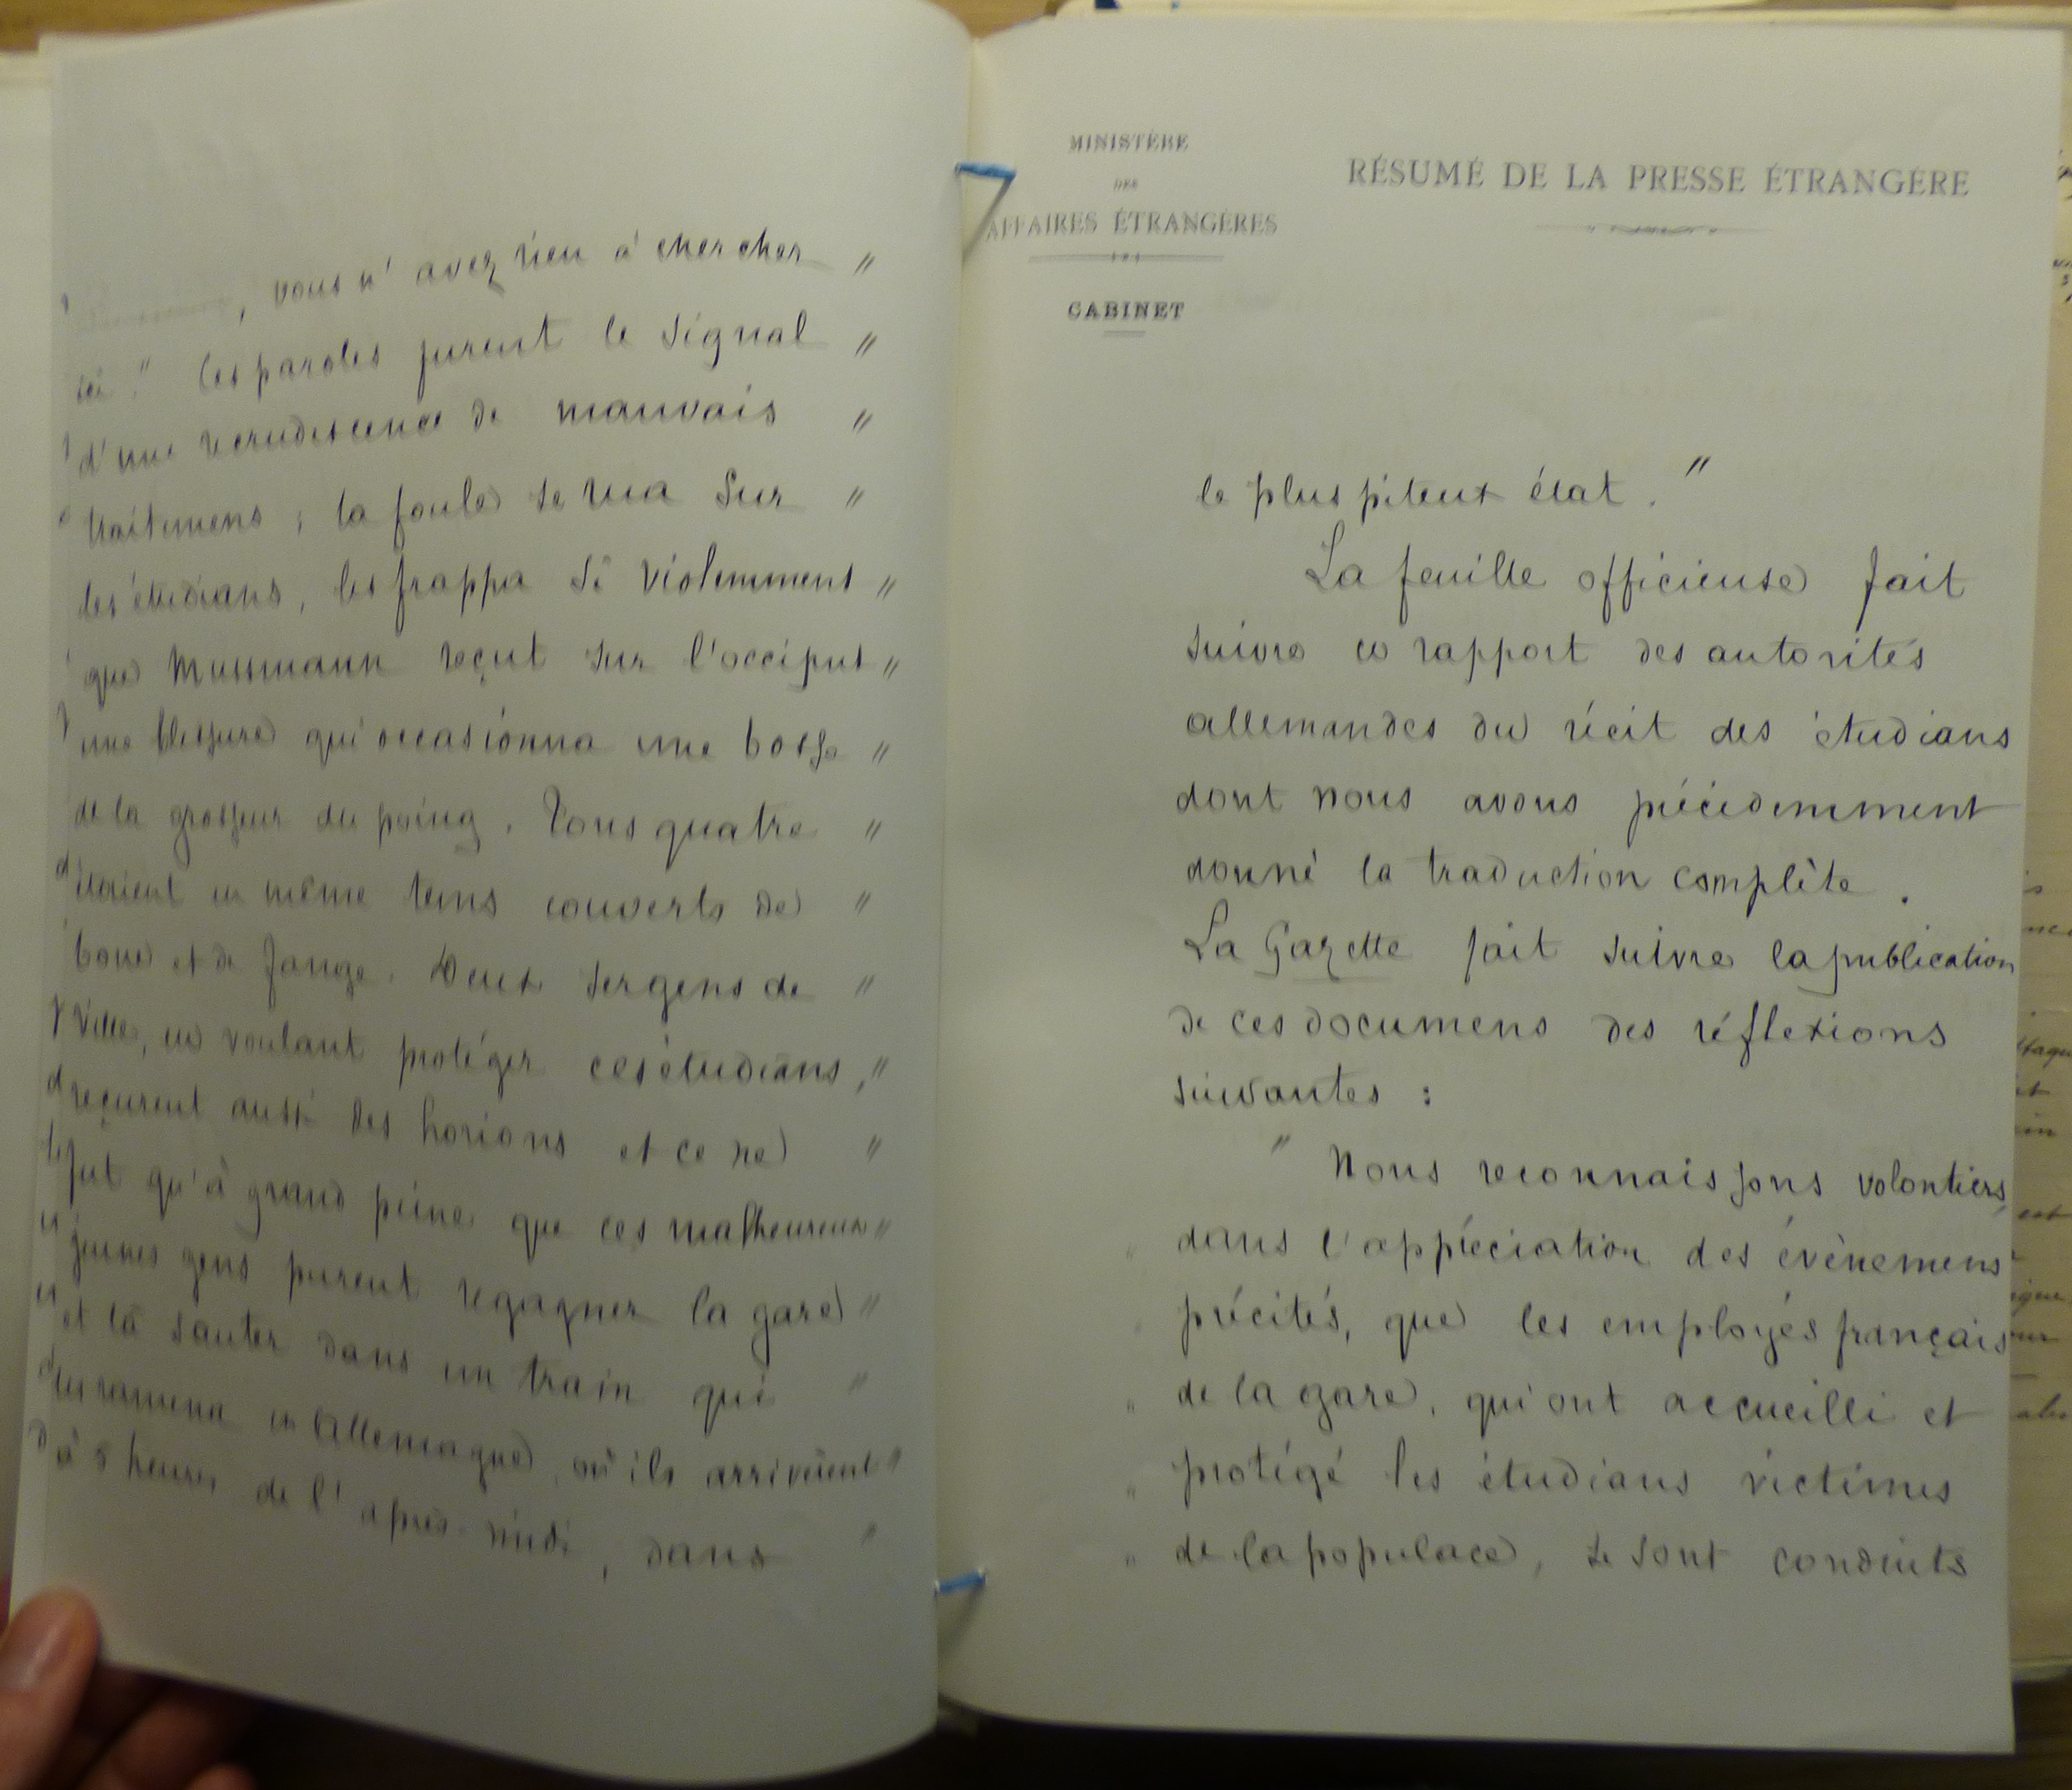 , vous n'avez rien à chercher "
ici." Ces paroles furent le signal "
d'une recrudescence de mauvais "
traitemens ; la foule se rua sur "
les étudians, les frappa si violemment "
que Mussmann reçut sur l'occiput "
une blessure qui occasionna une bosse "
de la grosseur du poing. Tous quatre "
étaient en même tems couverts de "
boue et de fange. Deux sergens de "
ville, en voulant protéger ces étudians, "
reçurent aussi des horions et ce ne "
fut qu'à grand peine que ces malheureux "
jeunes gens purent regagner la gare "
et là sauter dans un train qui "
les ramena en Allemagne, où ils arrivèrent "
à 5 heures de l'après-midi, dans "
MINISTÈRE
DES
AFFAIRES ÉTRANGÈRES
CABINET
RÉSUMÉ DE LA PRESSE ÉTRANGÈRE
le plus piteux état. "
La feuille officieuse fait
suivre ce rapport des autorités
allemandes du récit des étudians
dont nous avons précédemment
donné la traduction complète.
La Gazette fait suivre la publication
de ces documens des réflexions
suivantes :
" Nous reconnaissons volontiers,
" dans l'appréciation des évènemens
" précités, que les employés français
" de la gare, qui ont accueilli et
" protégé les étudians victimes
" de la populace, se sont conduits